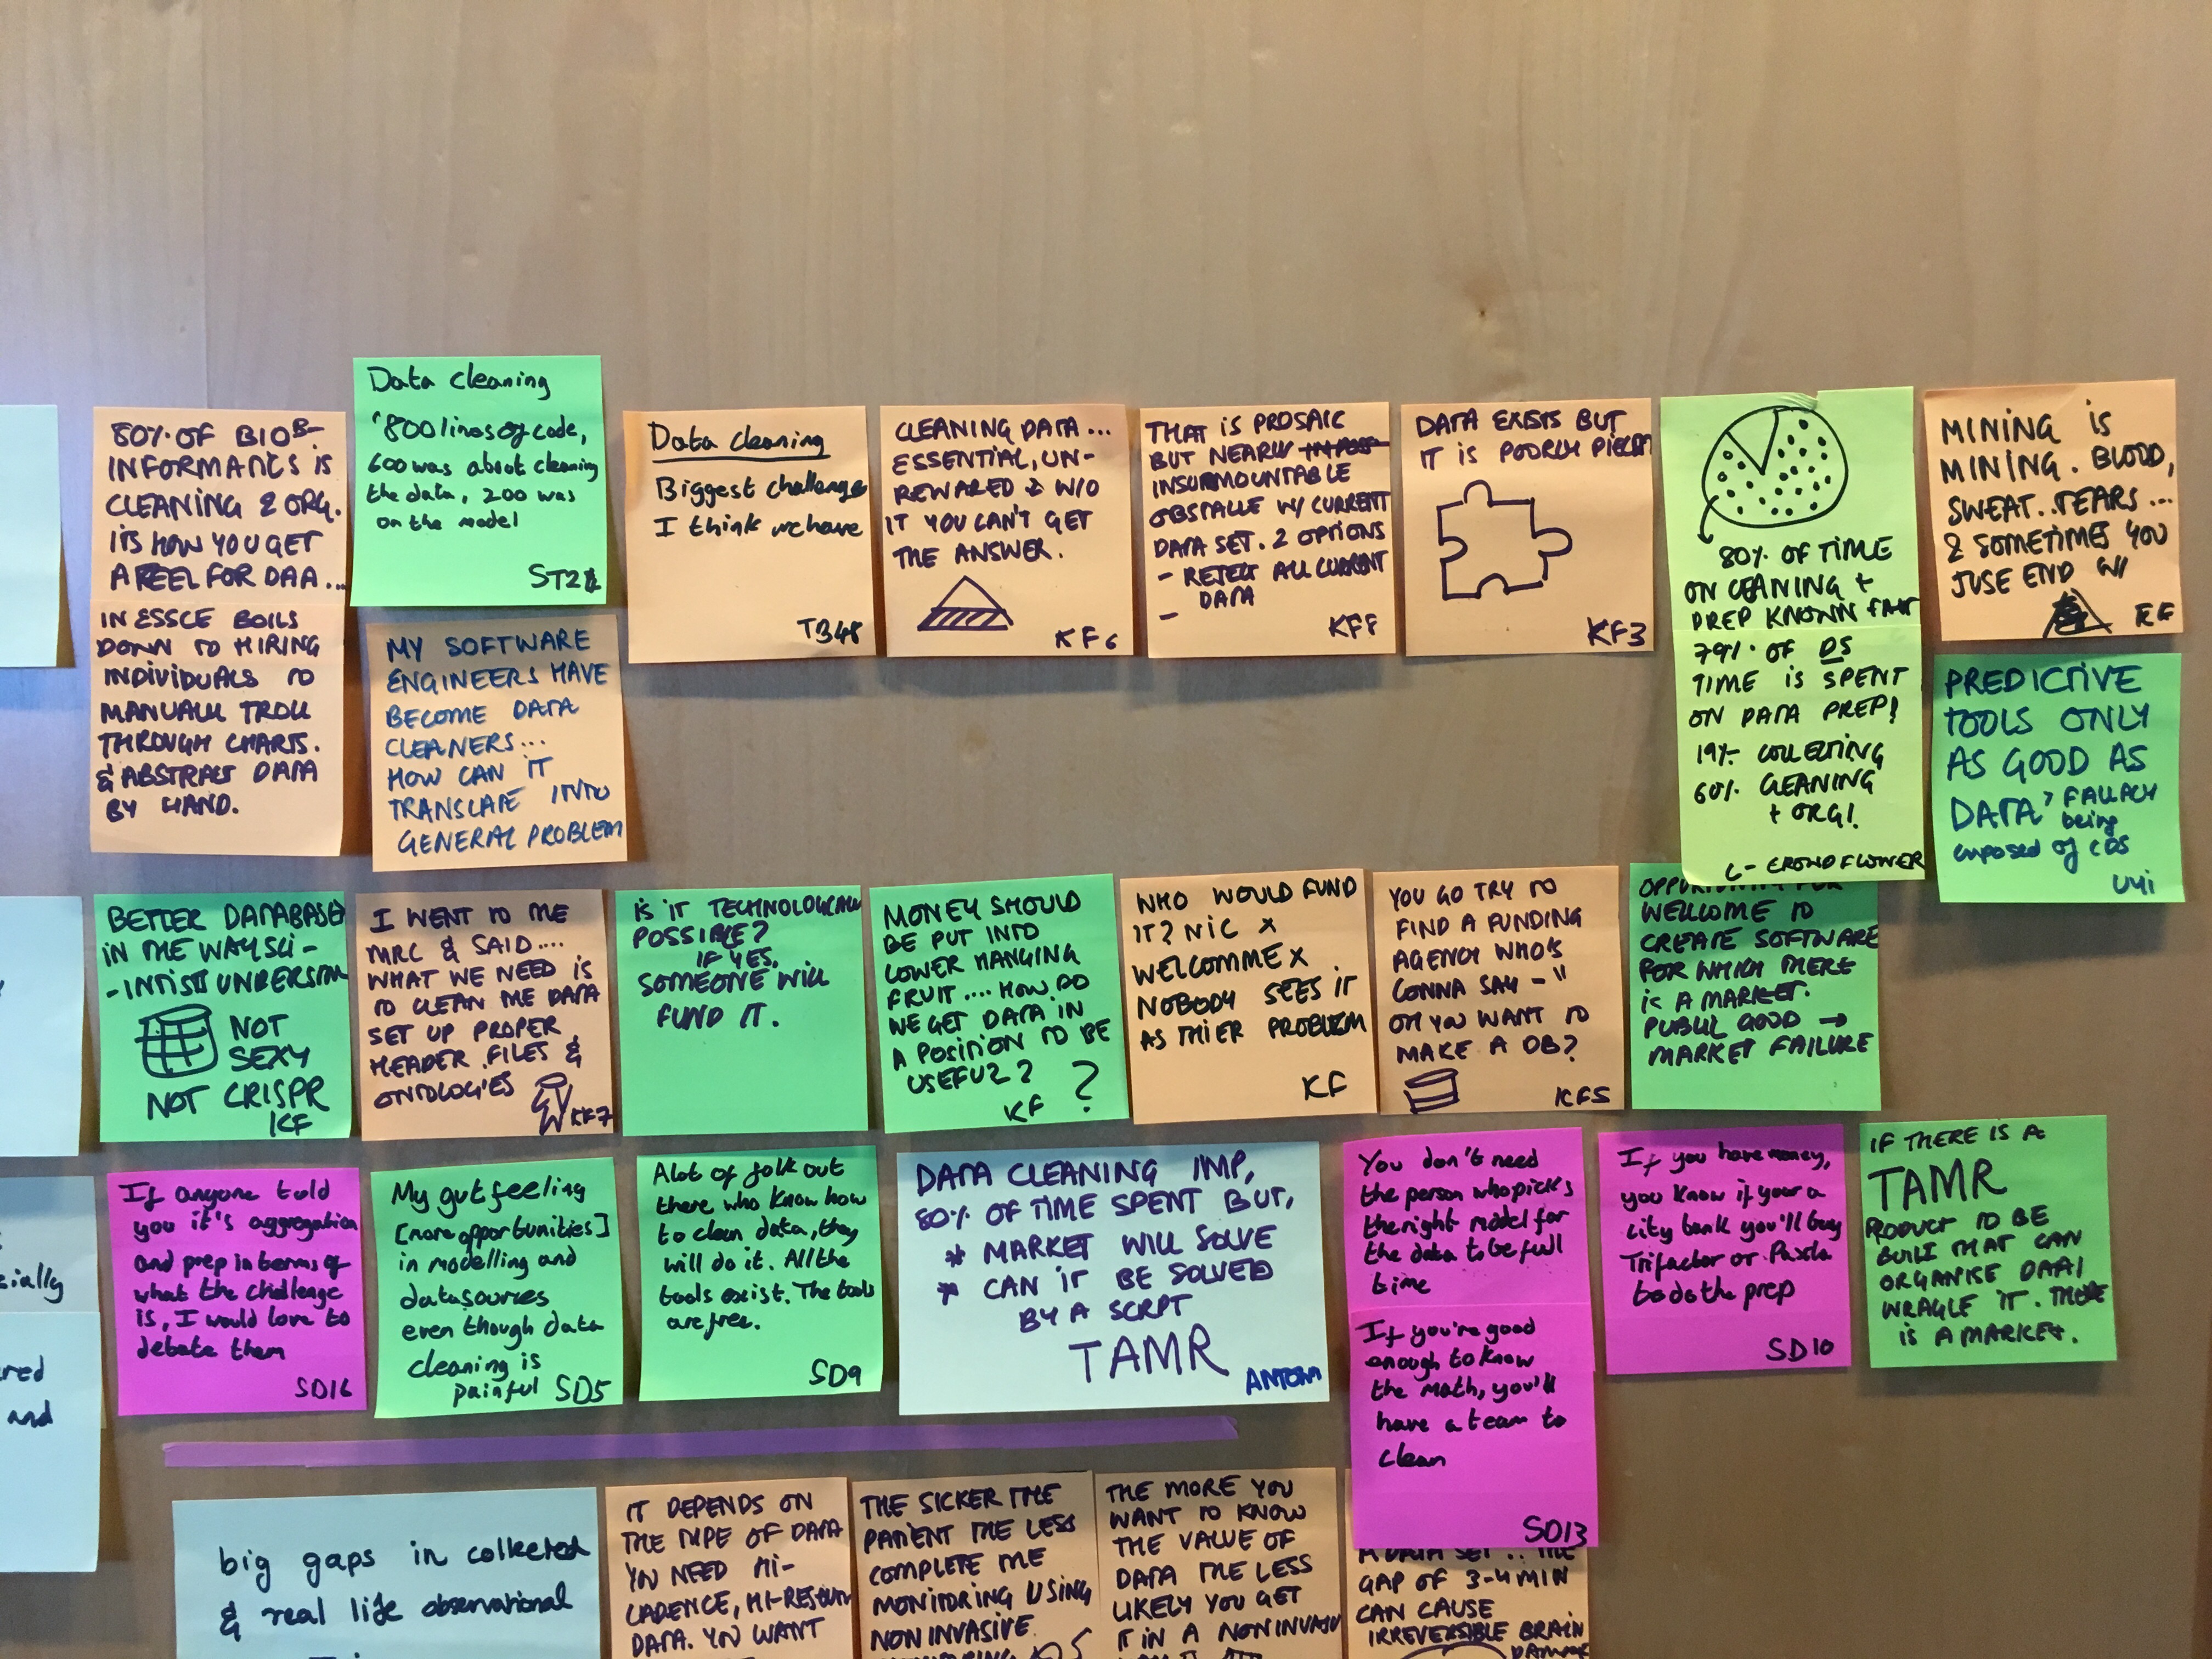 80% OF BIO
INFORMATICS IS
CLEANING & ORG.
ITS HOW YOU GET
A FEEL FOR DAA...
IN ESSCE BOILS
DOWN TO HIRING
INDIVIDUALS TO
MANUALL TROLL
THROUGH CHARTS.
& ABSTRACT DATA
BY HAND.
Data cleaning
"800 lines of code,
600 was about cleaning
the data, 200 was
on the model
MY SOFTWARE
ENGINEERS HAVE
BECOME DATA
CLEANERS...
HOW CAN IT
TRANSLATE INTO
GENERAL PROBLEM
Data cleaning
Biggest challenge
I think we have
TB48
CLEANING DATA...
ESSENTIAL, UN-
REWARED & W/O
IT YOU CAN'T GET
THE ANSWER.
KF6
THAT IS PROSAIC
BUT NEARLY
INSURMOUNTABLE
OBSTACLE W/ CURRENT
DATA SET. 2 OPTIONS
- REJECT ALL CURRENT
DATA
-
KF8
DATA EXISTS BUT
IT IS POORLY
KF3
80% OF TIME
ON CEANING +
PREP KNOWN FAR
79% OF DS
TIME IS SPENT
ON DATA PREP!
19% COLLECTING
60% CLEANING
+ ORG!
C- CROWDFLOWER
MINING IS
MINING. BLOOD,
SWEAT..TEARS...
& SOMETIMES YOU
JUSE END W/
PREDICTIVE
TOOLS ONLY
AS GOOD AS
DATA? FALLACY
being
exposed of CDS
U4i
BETTER DATABASES
IN THE WAY SCI-
-INTISTI
NOT
SEXY
NOT CRISPR
KF
I WENT TO THE
MRC & SAID....
WHAT WE NEED IS
TO CLEAN THE DATA
SET UP PROPER
HEADER FILES &
ONTOLOGIES
KF7
IS IT TECHNOLOGICALLY
POSSIBLE?
IF YES,
SOMEONE WILL
FUND IT.
MONEY SHOULD
BE PUT INTO
LOWER HANGING
FRUIT.... HOW DO
WE GET DATA IN
A POSITION TO BE
USEFUL?
KF ?
WHO WOULD FUND
IT? NIC X
WELCOMME X
NOBODY SEES IT
AS THIER PROBLEM
KF
YOU GO TRY TO
FIND A FUNDING
AGENCY WHO'S
GONNA SAY - "
OH YOU WANT TO
MAKE A DB?
KF5
OPPORTUNITY FOR
WELLCOME TO
CREATE SOFTWARE
FOR WHICH THERE
IS A MARKET.
PUBLIC GOOD →
MARKET FAILURE
If anyone told
you it's aggregation
and prep in terms of
what the challenge
is, I would love to
debate them
SD16
My gut feeling
[more opportunities]
in modelling and
datasources
even though data
cleaning is
painful SD5
Alot of folk out
there who know how
to clean data, they
will do it. All the
tools exist. The tools
are free.
SD9
DATA CLEANING IMP,
80% OF TIME SPENT BUT,
* MARKET WILL SOLVE
* CAN IT BE SOLVED
BY A SCRPT
TAMR
You don't need
the person who picks
the right model for
the data to be full
time
If you're good
enough to know
the math, you'll
have a team to
clean
SD13
If you have money,
you know if your a
city bank you'll buy
Trifactor or Paxata
to do the prep
SD10
IF THERE IS A
TAMR
RODUCT TO BE
BUILT THAT CAN
ORGANISE DATA/
WRAGLE IT. THERE
IS A MARKET.
cially
red
and
big gaps in collected
& real life observational
IT DEPENDS ON
THE TYPE OF DATA
YOU NEED HI-
CADENCE, HI-RESOLUTN
DATA. YOU WANT
THE SICKER THE
PATIENT THE LESS
COMPLETE THE
MONITORING USING
NON INVASIVE
THE MORE YOU
WANT TO KNOW
THE VALUE OF
DATA THE LESS
LIKELY YOU GET
IT IN A NONINVASIV
A DATA SET.. THE
GAP OF 3-4 MIN
CAN CAUSE
IRREVERSIBLE BRAIN
DAMAGE